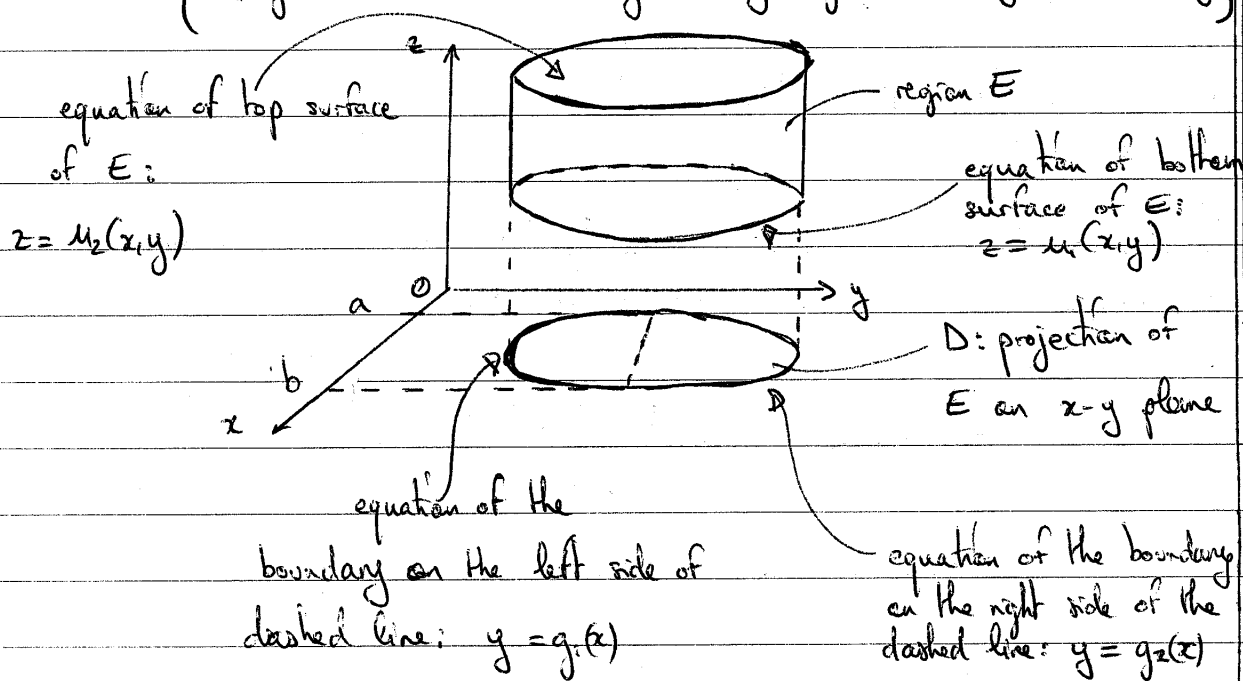 z
equation of top surface
of E:
z = u₂(x,y)
region E
equation of bottom
surface of E:
z = u₁(x,y)
O
y
a
b
x
D: projection of
E on x-y plane
equation of the
boundary on the left side of
dashed line: y = g₁(x)
equation of the boundary
on the right side of the
dashed line: y = g₂(x)